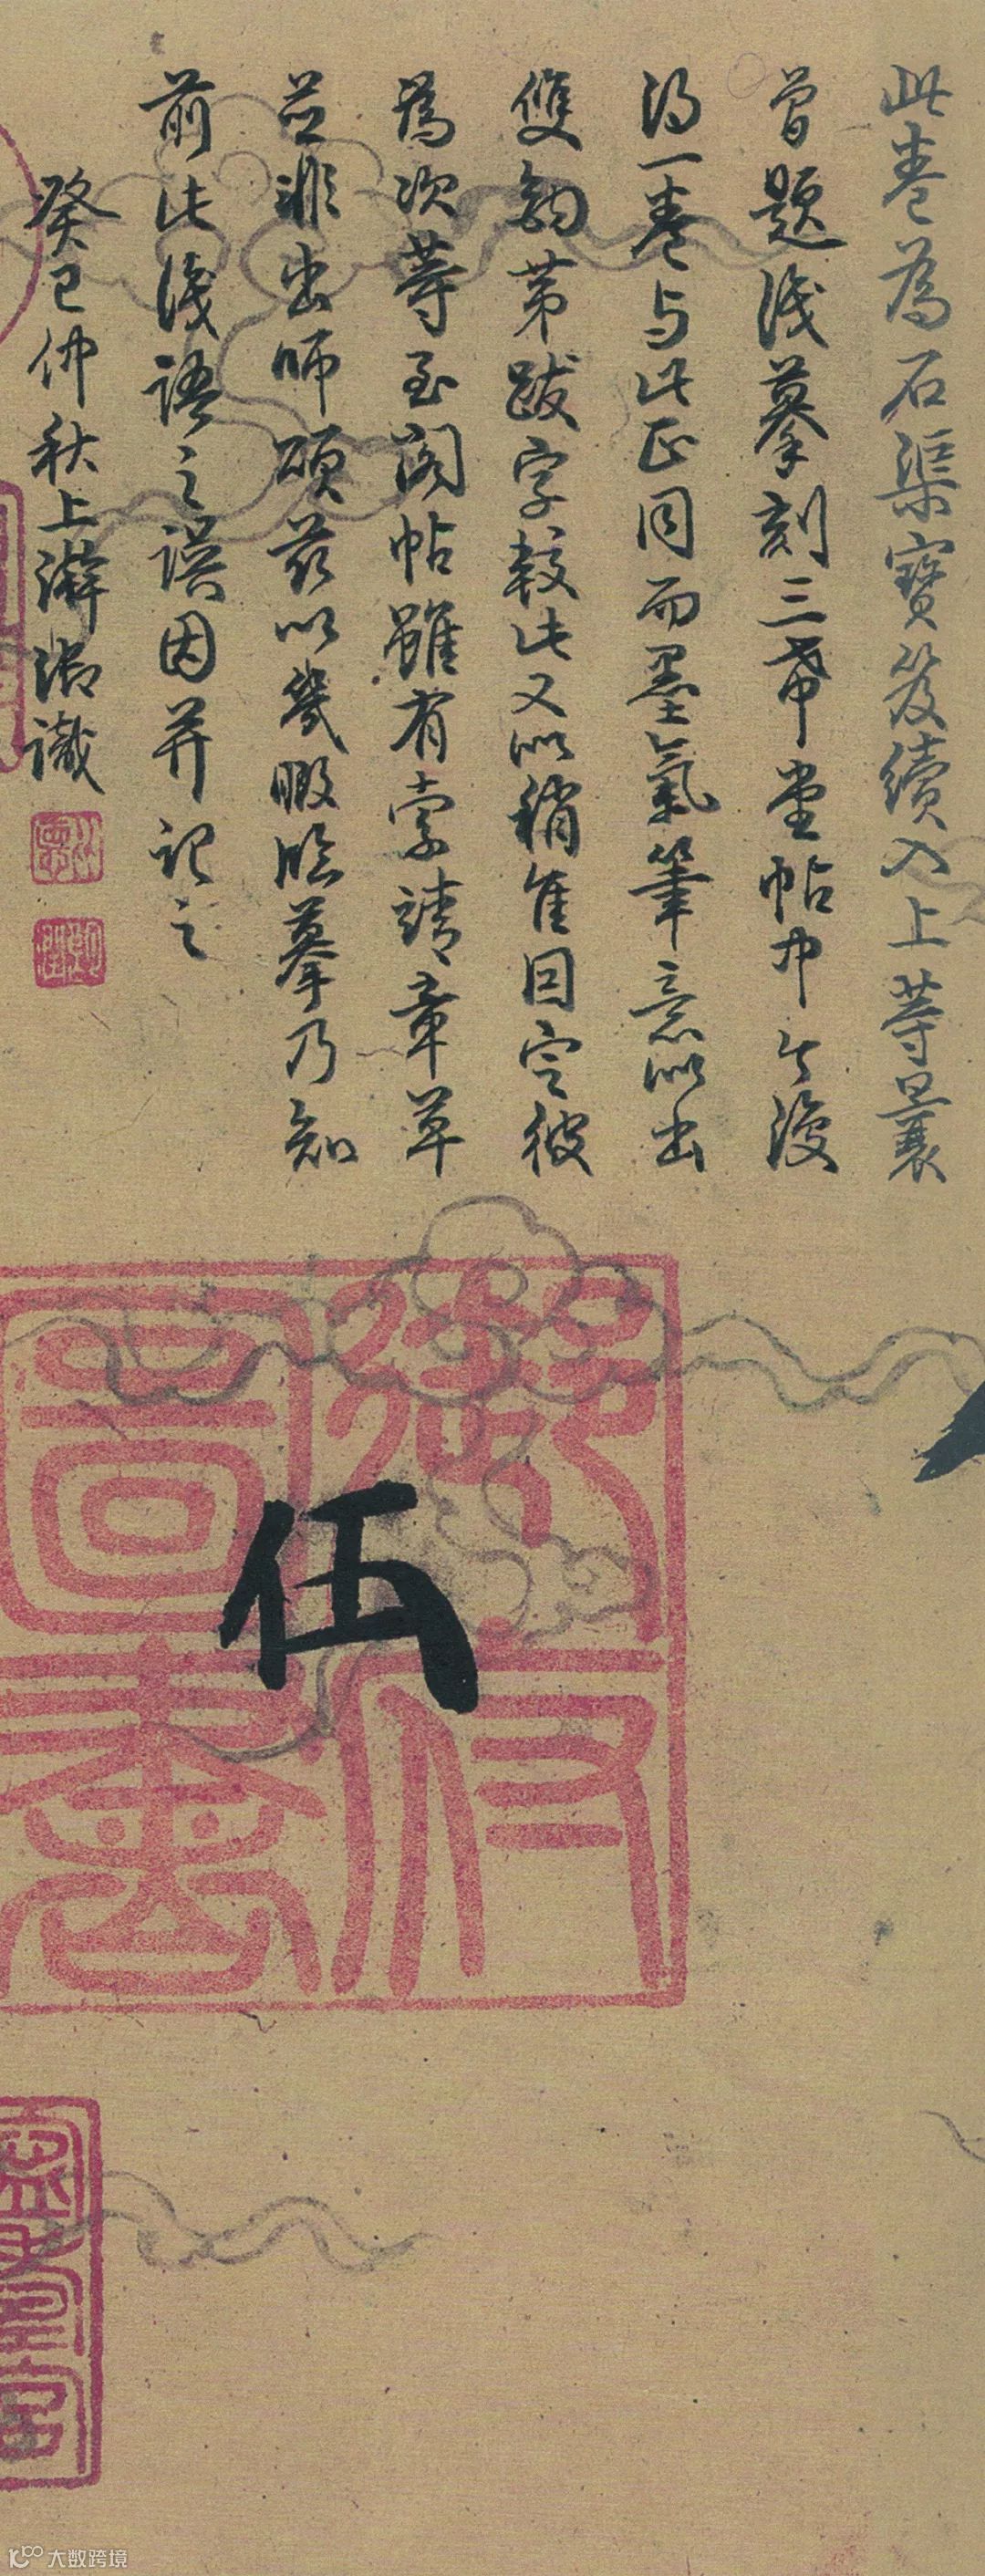 此卷為石渠寶笈續入上等曩
曾題識摹刻三希堂帖中今復
得一卷与此正同而墨氣筆意似出
雙鉤第跋字較此又似稍隹因定彼
為次等至閣帖雖有索靖章草
並非出師頌茲以幾暇臨摹乃知
前此識語之誤因并記之
癸巳仲秋上澣御識
伍
大数跨境